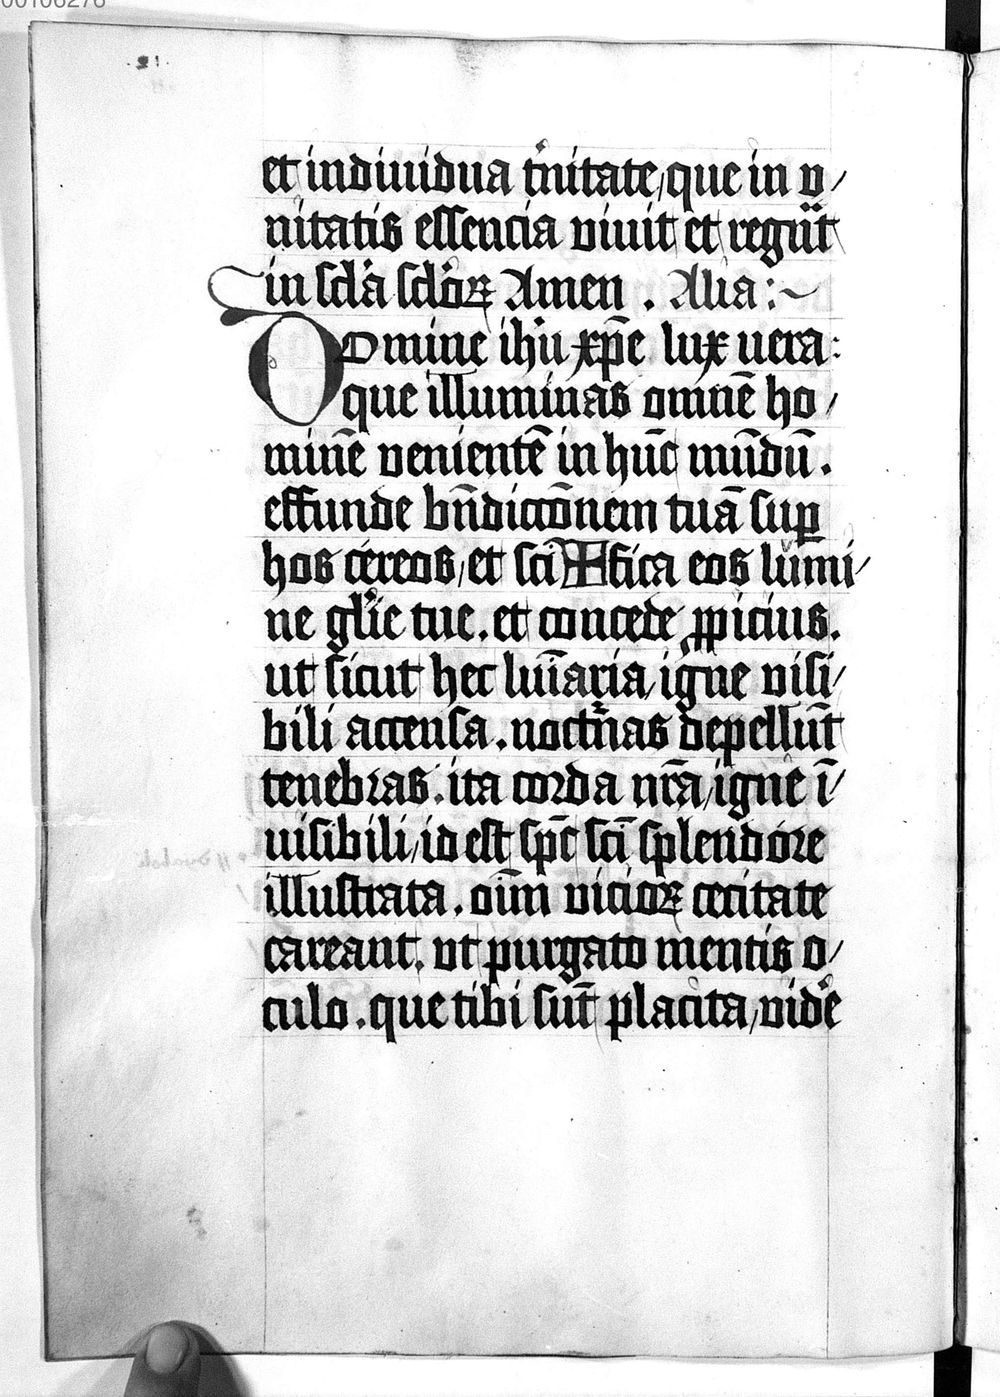 00106276
.21.
et indiuidua tⁱnitate, que in v/
nitatis essencia viuit et regnāt
in scl'a scl'oꝝ Amen . Alia :~
Domine ihū xp̄e lux uera :
que illuminas omnē ho/
minē venientē in hūc mūdū .
effunde bn̄dictōnem tuā suꝑ
hos cereos, et sci ✠ fica eos lumi/
ne gl'ie tue . et concede ꝓpicius .
ut sicut hec luīaria, igne visi/
bili accensa . noct'nas depellūt
tenebras . ita corda nr̄a, igne ī/
uisibili, id est sp̄c sc̄i splendore
illustrata . oīm vicioꝝ cecitate
careant . vt purgato mentis o/
culo . que tibi sūt placita, vid'e